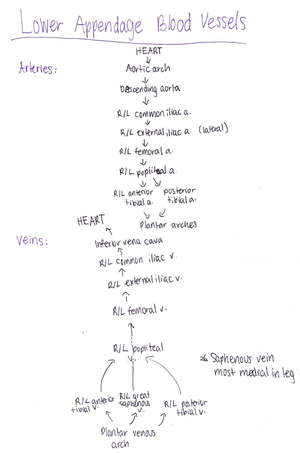 Lower Appendage Blood Vessels
Arteries:
HEART
Aortic arch
Descending aorta
R/L common iliac a.
R/L external iliac a. (lateral)
R/L femoral a.
R/L popliteal a.
R/L anterior tibial a.
posterior tibial a.
Plantar arches
Veins:
HEART
Inferior vena cava
R/L common iliac v.
R/L external iliac v.
R/L femoral v.
R/L popliteal v.
* Saphenous vein
most medical in leg
R/L anterior
tibial v.
R/L great
saphenous
v.
R/L posterior
tibial v.
Plantar venous
arch